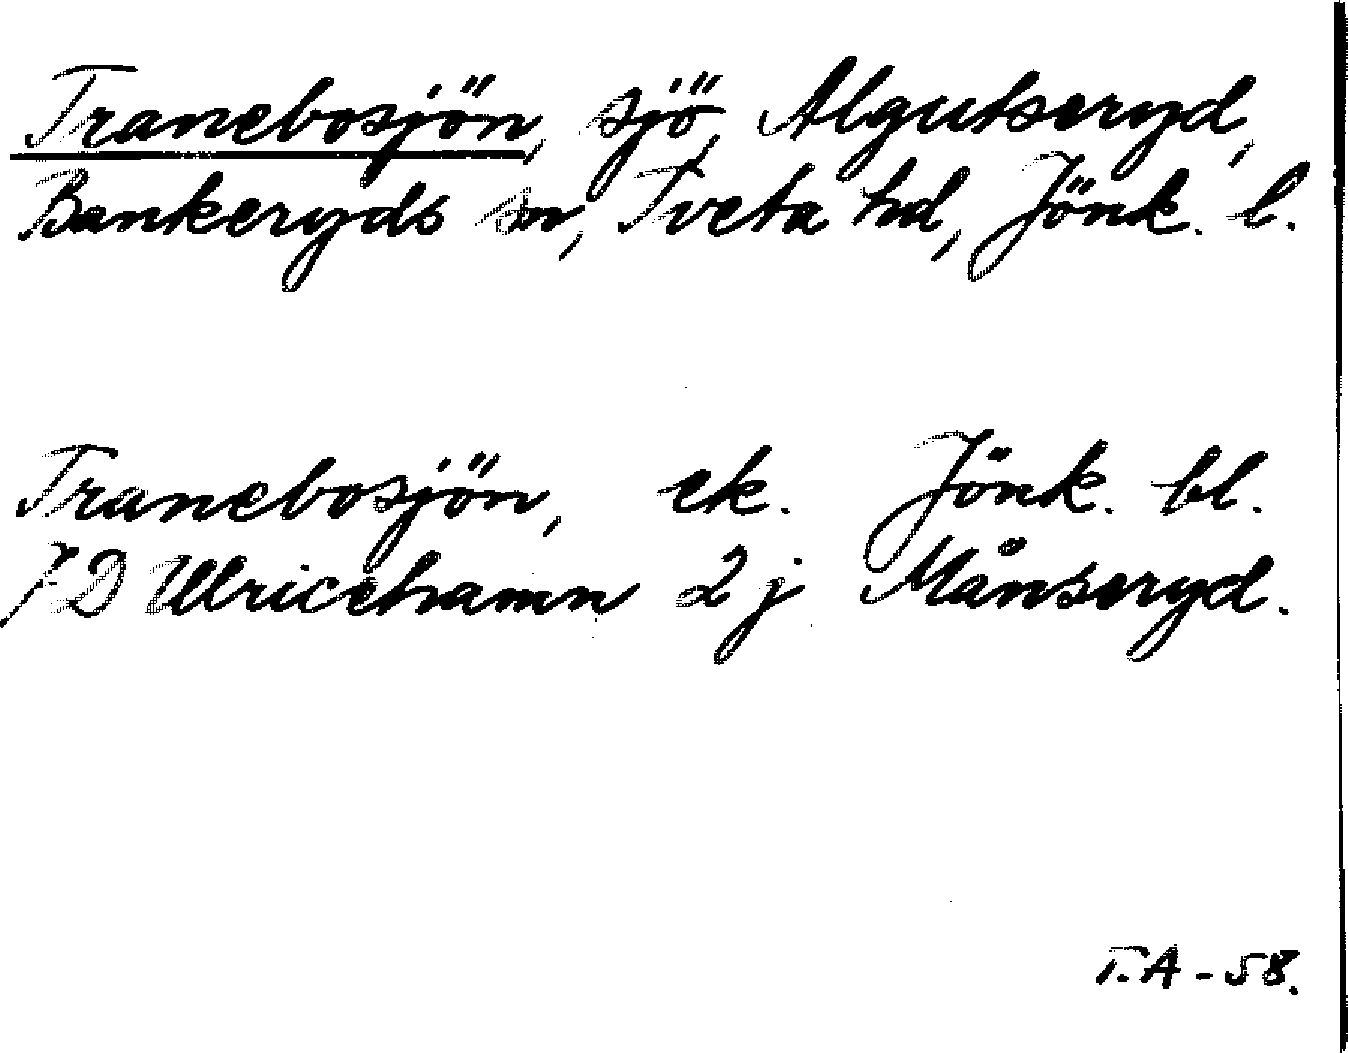 Tranebosjön, sjö, Algutseryd,
Bankeryds sn, Tveta hd, Jönk. l.
Tranebosjön, ek. Jönk. bl.
7D Ulricehamn 2j Månseryd.
T.A - 58.